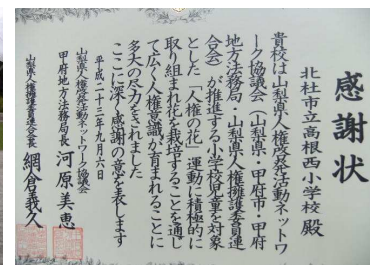 感謝状
北杜市立高根西小学校殿
貴校は山梨県人権啓発活動ネットワ
ーク協議会（山梨県・甲府市・甲府
地方法務局・山梨県人権擁護委員連
合会）が推進する小学校児童を対象
とした「人権の花」運動に積極的に
取り組まれ花を栽培することを通し
て広く人権意識が育まれることに
多大の尽力をされました
ここに深く感謝の意を表します
平成二十三年九月六日
山梨県人権啓発活動ネットワーク協議会
甲府地方法務局長 河原美恵
山梨県人権擁護委員連合会長 網倉義久